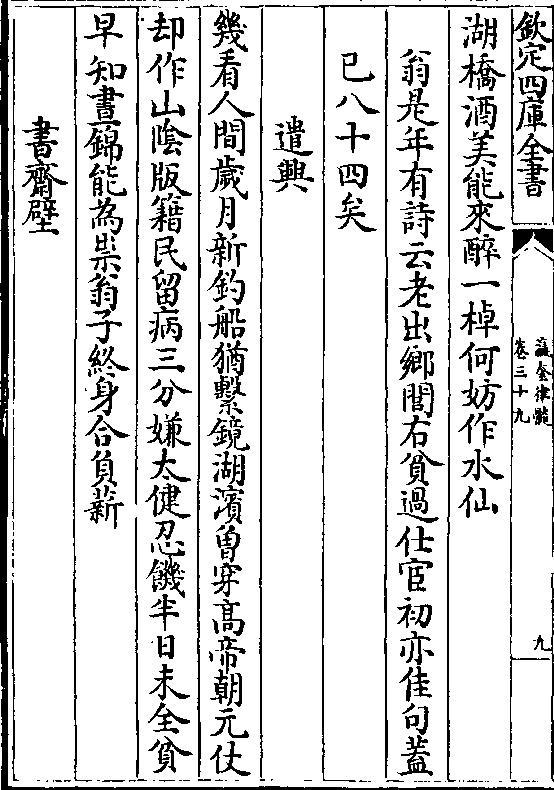 欽定四庫全書
瀛奎律髓
卷三十九
九
湖橋酒美能來醉一棹何妨作水仙
翁是年有詩云老出鄉閭右貧過仕宦初亦佳句蓋
已八十四矣
遣興
幾看人間歲月新釣船猶繫鏡湖濱曽穿髙帝朝元仗
却作山陰版籍民留病三分嫌太健忍饑半日未全貧
早知晝錦能為祟翁子終身合負薪
書齋壁